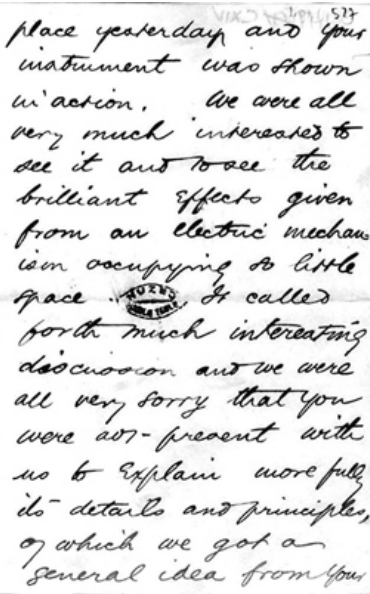 527
place yesterday and your
instrument was shown
in action. We were all
very much interested to
see it and to see the
brilliant effects given
from an electric mechan
ism occupying so little
space. It called
forth much interesting
discussion and we were
all very sorry that you
were not present with
us to Explain more fully
its details and principles,
of which we got a
general idea from your